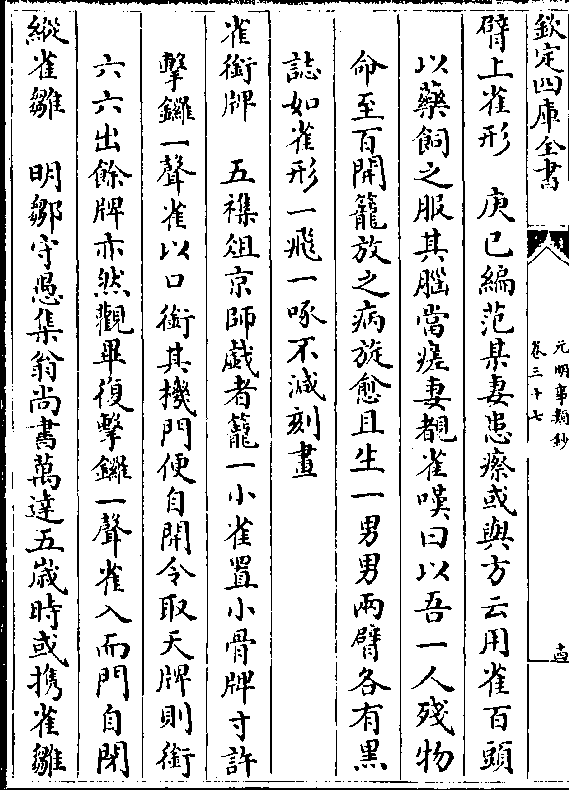 欽定四庫全書
元明事類鈔
卷三十七
臂上雀形　庚巳編范某妻患瘵或與方云用雀百頭
以藥飼之服其腦當痊妻覩雀嘆曰以吾一人殘物
命至百開籠放之病旋愈且生一男男兩臂各有黑
誌如雀形一飛一啄不減刻畫
雀銜牌　五襍俎京師戲者籠一小雀置小骨牌寸許
擊鑼一聲雀以口銜其機門便自開令取天牌則銜
六六出餘牌亦然觀畢復擊鑼一聲雀入而門自閉
縱雀雛　明鄒守愚集翁尚書萬達五歲時或擕雀雛